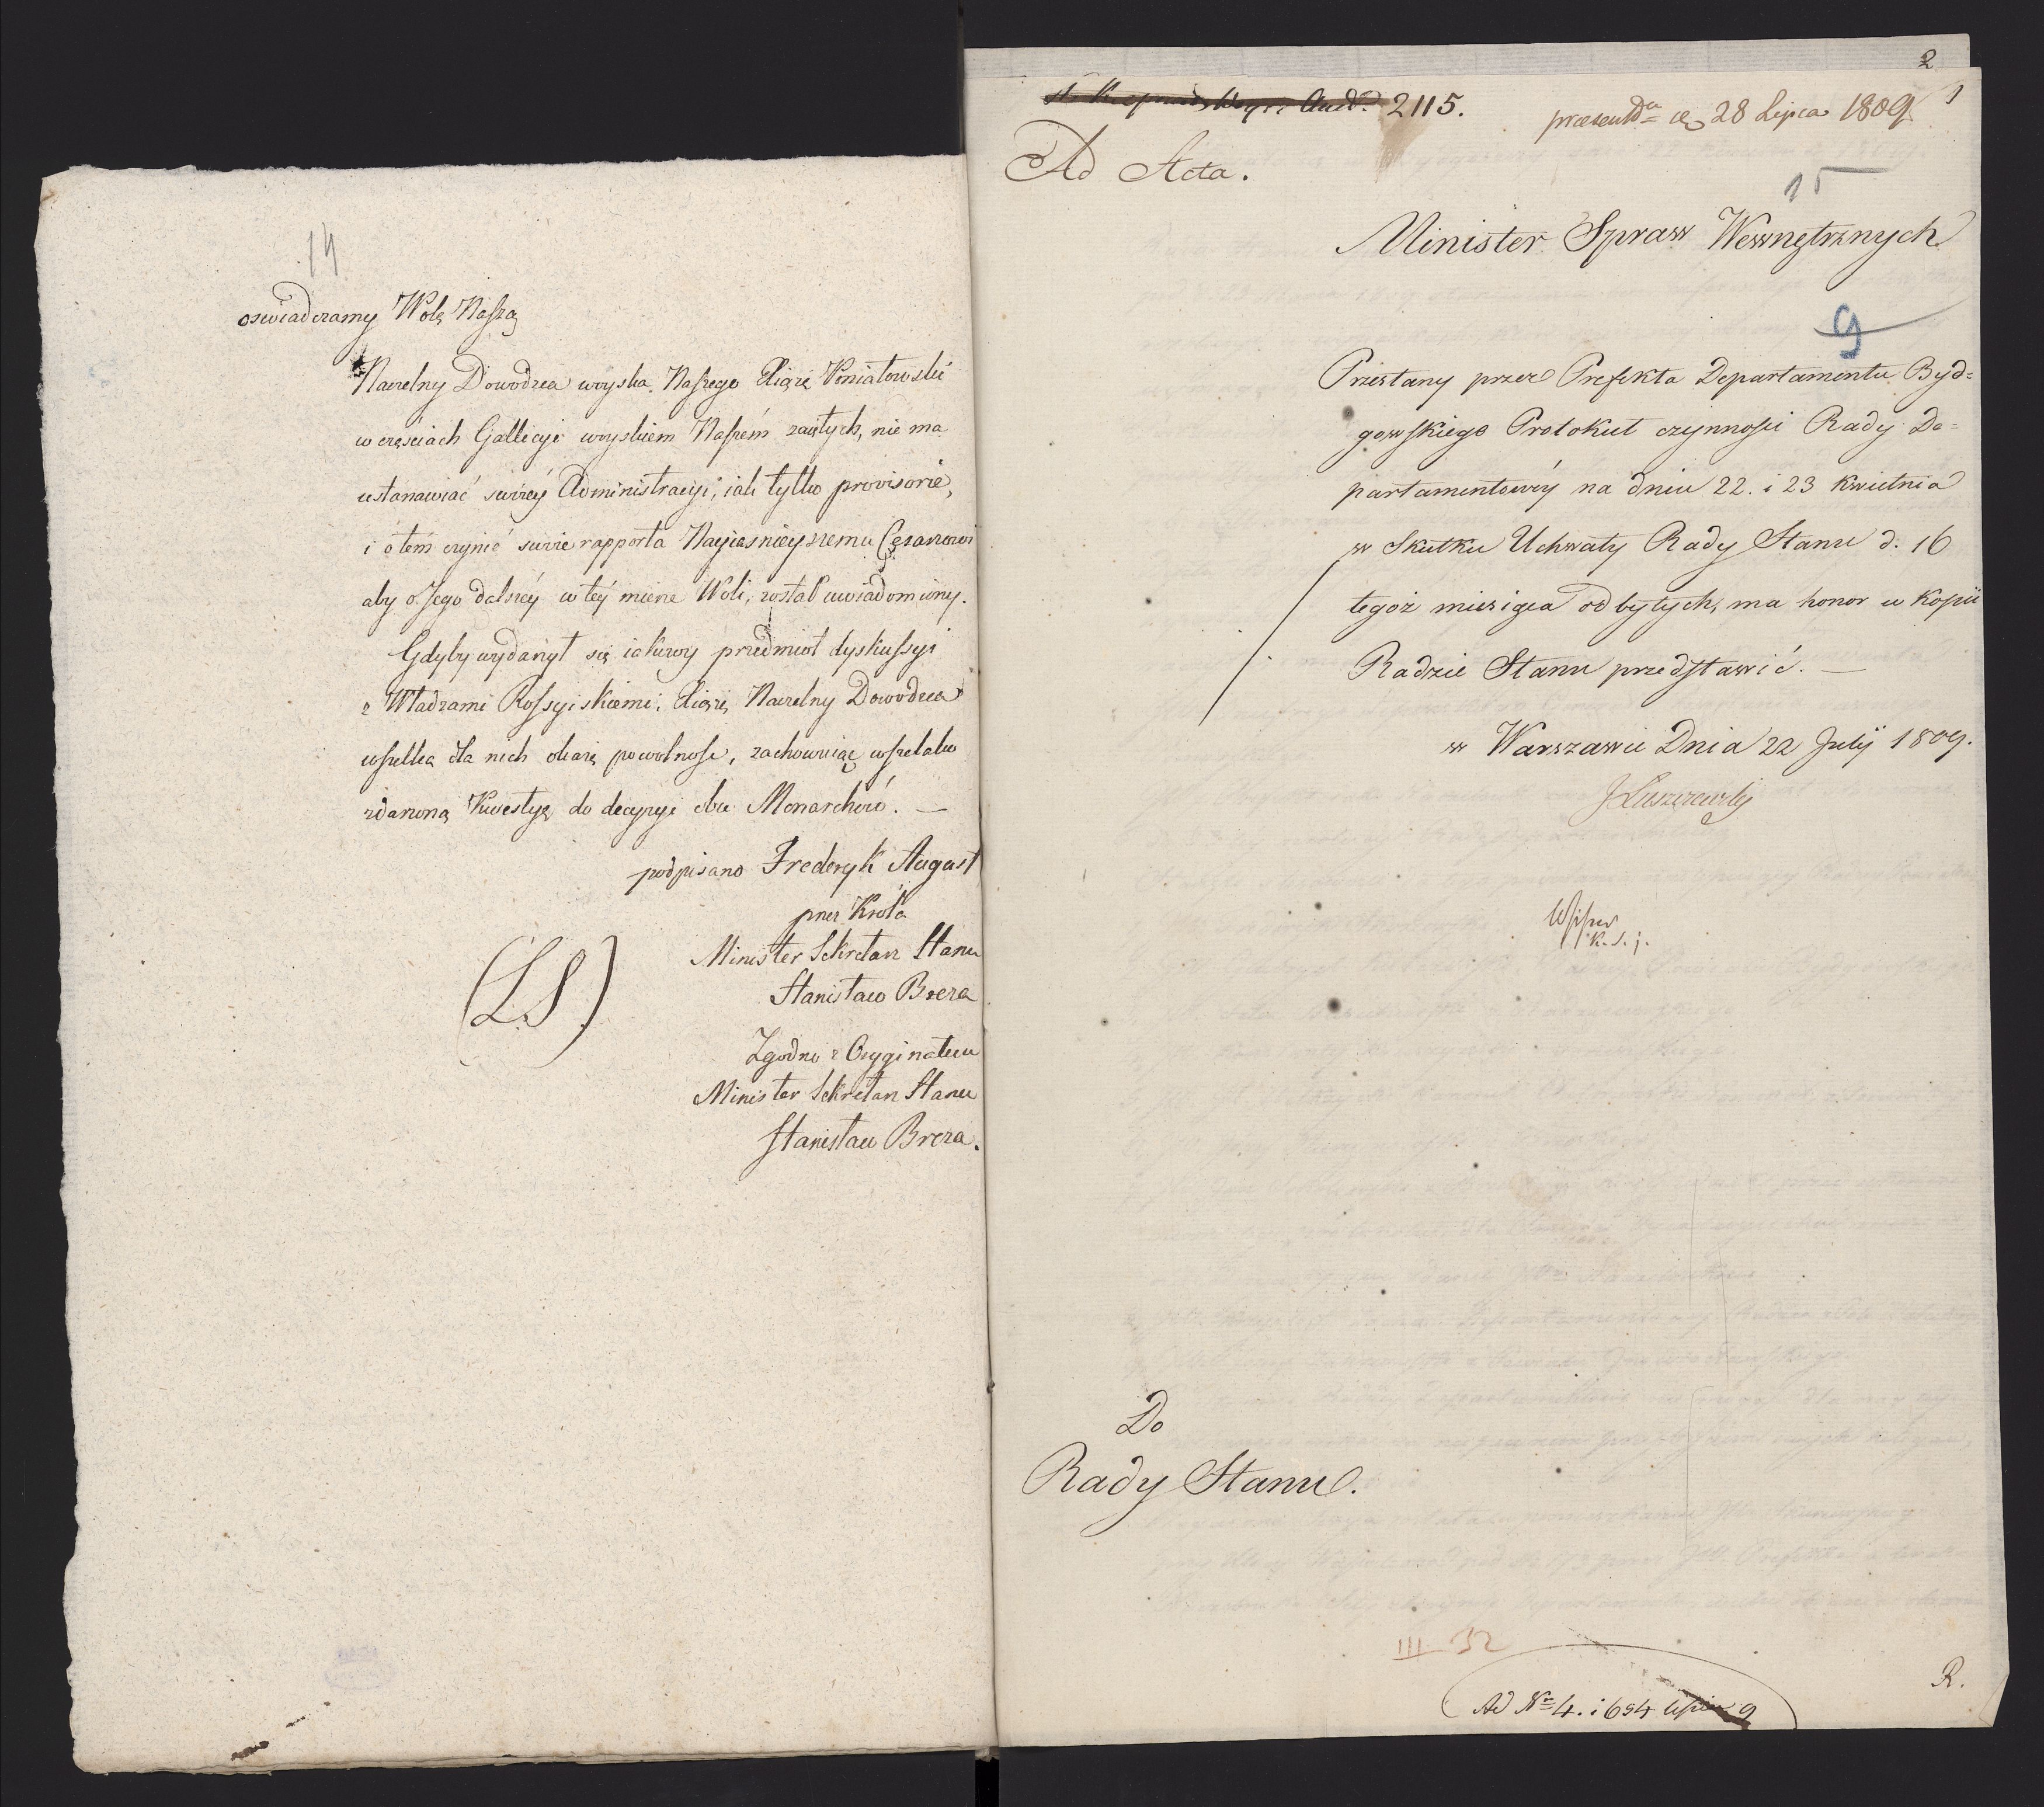 14
oswiadczamy Wolę Naszą
Naczelny Dowodzca woyska Naszego Xiąże Poniatowski
w częściach Gallicyi woyskiem Naszém zaiętych, nie ma
ustanawiać swiéy Administracyi, iak tylko provisorie,
i o tém czynić swie rapporta Nayiasnieyszemu Cesarzowi
aby o Jego dalszéy w téy mierze Woli, został uwiadomiony.
Gdyby wydarzył się iakowy przedmiot dyskussyi
z Władzami Rossyiskiemi, Xiąże Naczelny Dowodzca
wszelką dla nich okaże powolność, zachowuiąc wszelako
zdarzoną Kwestyą do decyzyi obu Monarchów. —
podpisano Frederyk August
przez Króla
Minister Sekretarz Stanu
(L.S) Stanisław Breza
Zgodno z Oryginałem
Minister Sekretarz Stanu
Stanisław Breza.
2
2115. praesentm d. 28 Lipca 1809 1
Ad Acta.
15
Minister Spraw Wewnętrznych
9
Przesłany przez Prefekta Departamentu Byd=
gowskiego Protokuł czynności Rady De=
partamentowéy na dniu 22. i 23 Kwietnia
w Skutku Uchwały Rady Stanu d. 16
tegoż miesiąca odbytych, ma honor w Kopii
Radzie Stanu przedstawić. —
w Warszawie Dnia 22 July 1809.
JŁuszczewski
K. S. j.
Do
Rady Stanu.
III 32
R.
Ad No 4. i 654 9